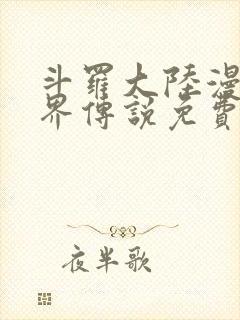 斗羅大陸漫
界傳說免費
夜半歌